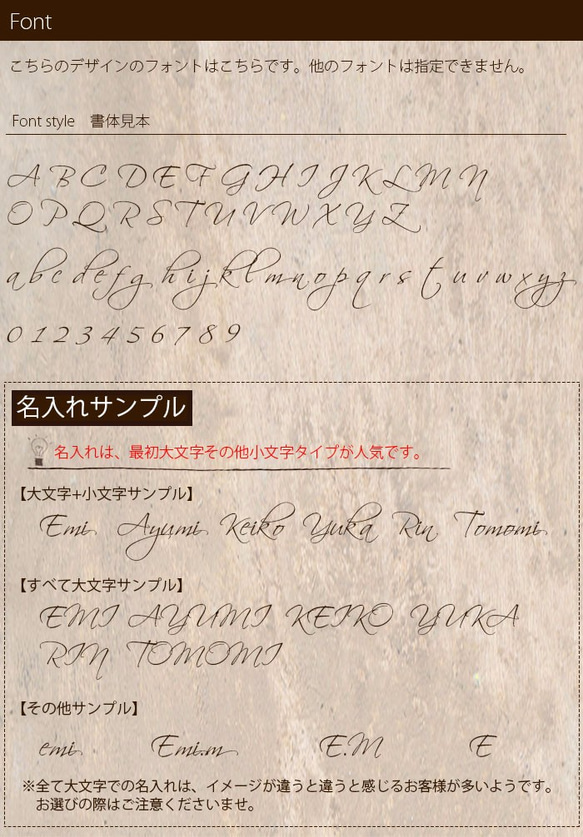 Font
こちらのデザインのフォントはこちらです。他のフォントは指定できません。
Font style 書体見本
A B C D E F G H I J K L M N
O P Q R S T U V W X Y Z
a b c d e f g h i j k l m n o p q r s t u v w x y z
0 1 2 3 4 5 6 7 8 9
名入れサンプル
名入れは、最初大文字その他小文字タイプが人気です。
【大文字+小文字サンプル】
Emi Ayumi Keiko Yuka Rin Tomomi
【すべて大文字サンプル】
EMI AYUMI KEIKO YUKA
RIN TOMOMI
【その他サンプル】
emi Emi.m E.M E
※全て大文字での名入れは、イメージが違うと違うと感じるお客様が多いようです。
お選びの際はご注意くださいませ。